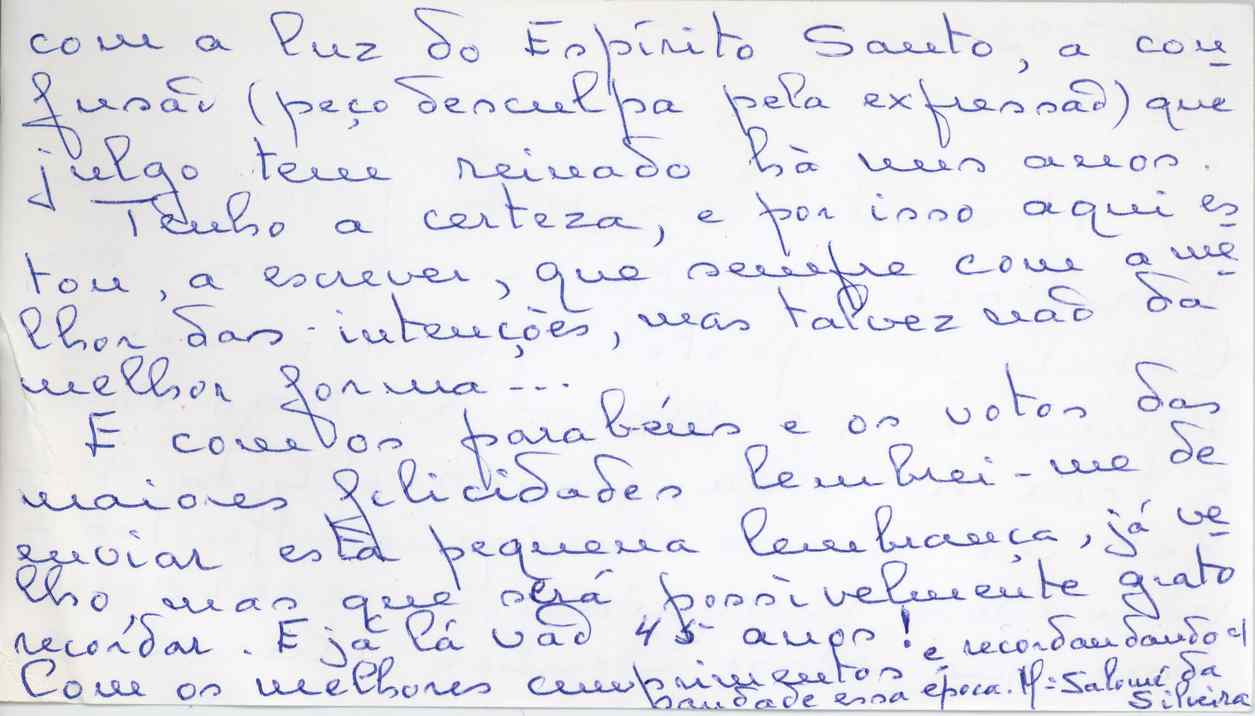 com a luz do Espírito Santo, a con
fusão (peço desculpa pela expressão) que
julgo tem reinado hà uns anos.
Tenho a certeza, e por isso aqui es
tou, a escrever, que sempre com a me
lhor das intenções, mas talvez não da
melhor forma...
E com os parabéns e os votos das
maiores felicidades lembrei-me de
enviar esta pequena lembrança, já ve
lho, mas que será possivelmente grato
recordar. E já lá vão 45 anos! e recordandando c/
Com os melhores cumprimentos
saudade essa época. Mª Salomé da
Silveira